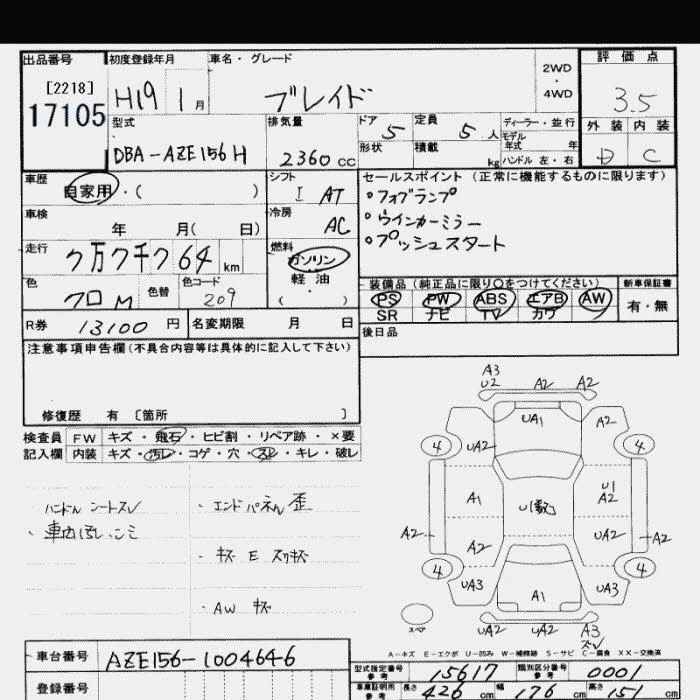 出品番号 初度登録年月 車名・グレード 2WD ・ 4WD 評価点
[2218]
17105 H19 1月 ブレイド 3.5
型式 排気量 ドア 5 定員 5人 ディーラー・並行 外装 内装
DBA-AZE156H 2360cc 形状 積載 kg モデル年式 年 D C
ハンドル 左・右
車歴 自家用・( ) シフト I AT セールスポイント(正常に機能するものに限ります)
車検 年 月( 日) 冷房 AC °フォグランプ
°ウインカーミラー
°プッシュスタート
走行 7万7千764km 燃料 ガソリン
軽油
( )
色 クロM 色替 色コード 209 装備品(純正品に限り○をつけてください) 新車保証書
PS PW ABS エアB AW 有・無
SR ナビ TV カワ
R券 13100円 名変期限 月 日 後日品
注意事項申告欄(不具合内容等は具体的に記入して下さい)
修復歴 有 〔箇所 〕
検査員 FW キズ・飛石・ヒビ割・リペア跡・×要
記入欄 内装 キズ・汚レ・コゲ・穴・スレ・キレ・破レ
ハンドル シートスレ
・エンドパネル歪
・キズ E スリキズ
・AW キズ
A3
U2 A2 A2
UA1 A2
4 UA2 4
A1 U1
A2
A2 A2 UA2 A2
4 4
UA3 A1 UA3
スペア UA2 UA2 A3
A-キズ E-エクボ U-凹み W-補修跡 S-サビ C-腐食 XX-交換済
車台番号 AZE156-1004646
登録番号
型式指定番号 参考 15617 類別区分番号 参考 0001
車庫証明用 参考 長さ 426cm 幅 176cm 高さ 151cm